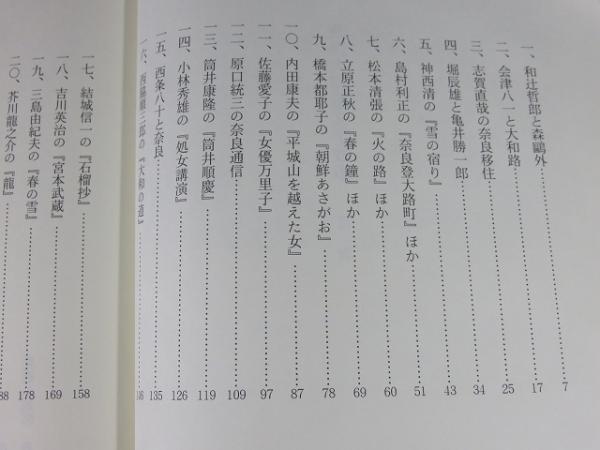 一、和辻哲郎と森鷗外 7
二、会津八一と大和路 17
三、志賀直哉の奈良移住 25
四、堀辰雄と亀井勝一郎 34
五、神西清の『雪の宿り』 43
六、島村利正の『奈良登大路町』ほか 51
七、松本清張の『火の路』ほか 60
八、立原正秋の『春の鐘』ほか 69
九、橋本都耶子の『朝鮮あさがお』 78
一〇、内田康夫の『平城山を越えた女』 87
一一、佐藤愛子の『女優万里子』 97
一二、原口統三の奈良通信 109
一三、筒井康隆の『筒井順慶』 119
一四、小林秀雄の『処女講演』 126
一五、西条八十と奈良 135
一六、西脇順三郎の『大和の道』
一七、結城信一の『石榴抄』 158
一八、吉川英治の『宮本武蔵』 169
一九、三島由紀夫の『春の雪』 178
二〇、芥川龍之介の『龍』 88